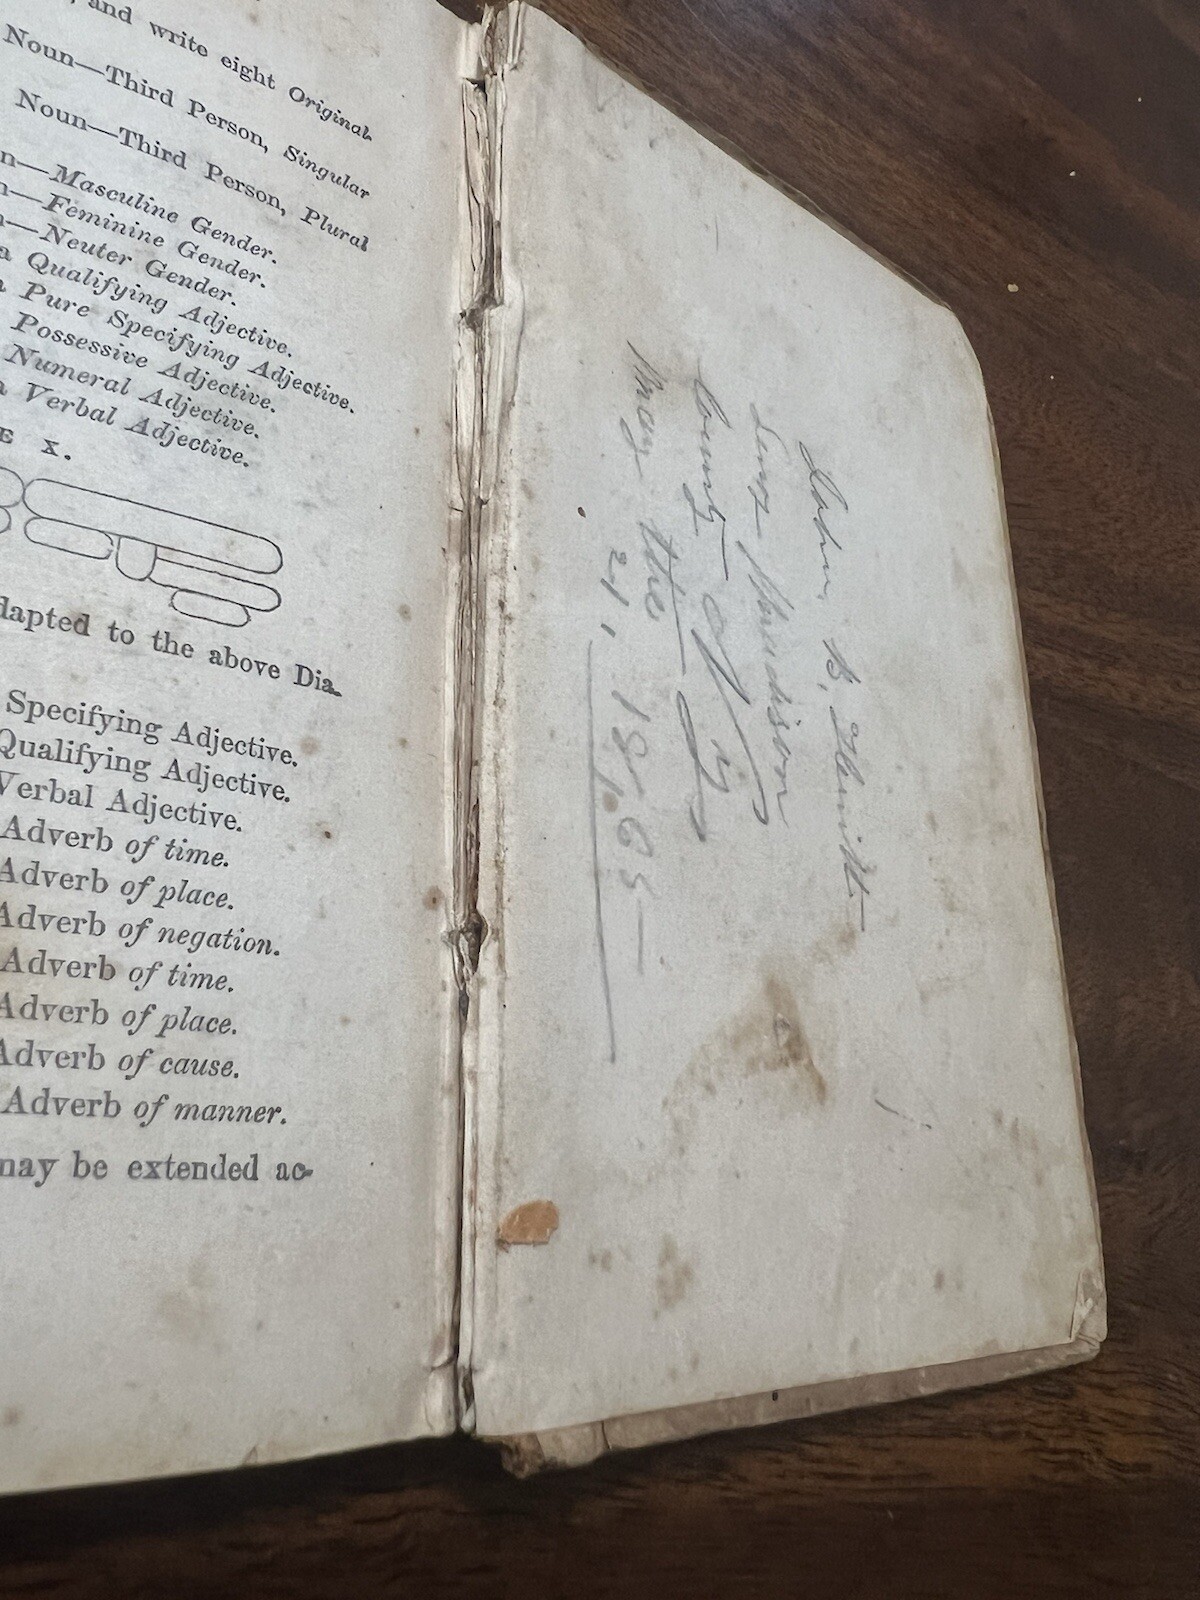 , and write eight Original
Noun—Third Person, Singular
Noun—Third Person, Plural
n—Masculine Gender.
n—Feminine Gender.
n—Neuter Gender.
a Qualifying Adjective.
a Pure Specifying Adjective.
Possessive Adjective.
Numeral Adjective.
a Verbal Adjective.
E X.
dapted to the above Dia-
Specifying Adjective.
Qualifying Adjective.
Verbal Adjective.
Adverb of time.
Adverb of place.
Adverb of negation.
Adverb of time.
Adverb of place.
Adverb of cause.
Adverb of manner.
may be extended ac-
John B.
Madison
County
May the
21, 1865